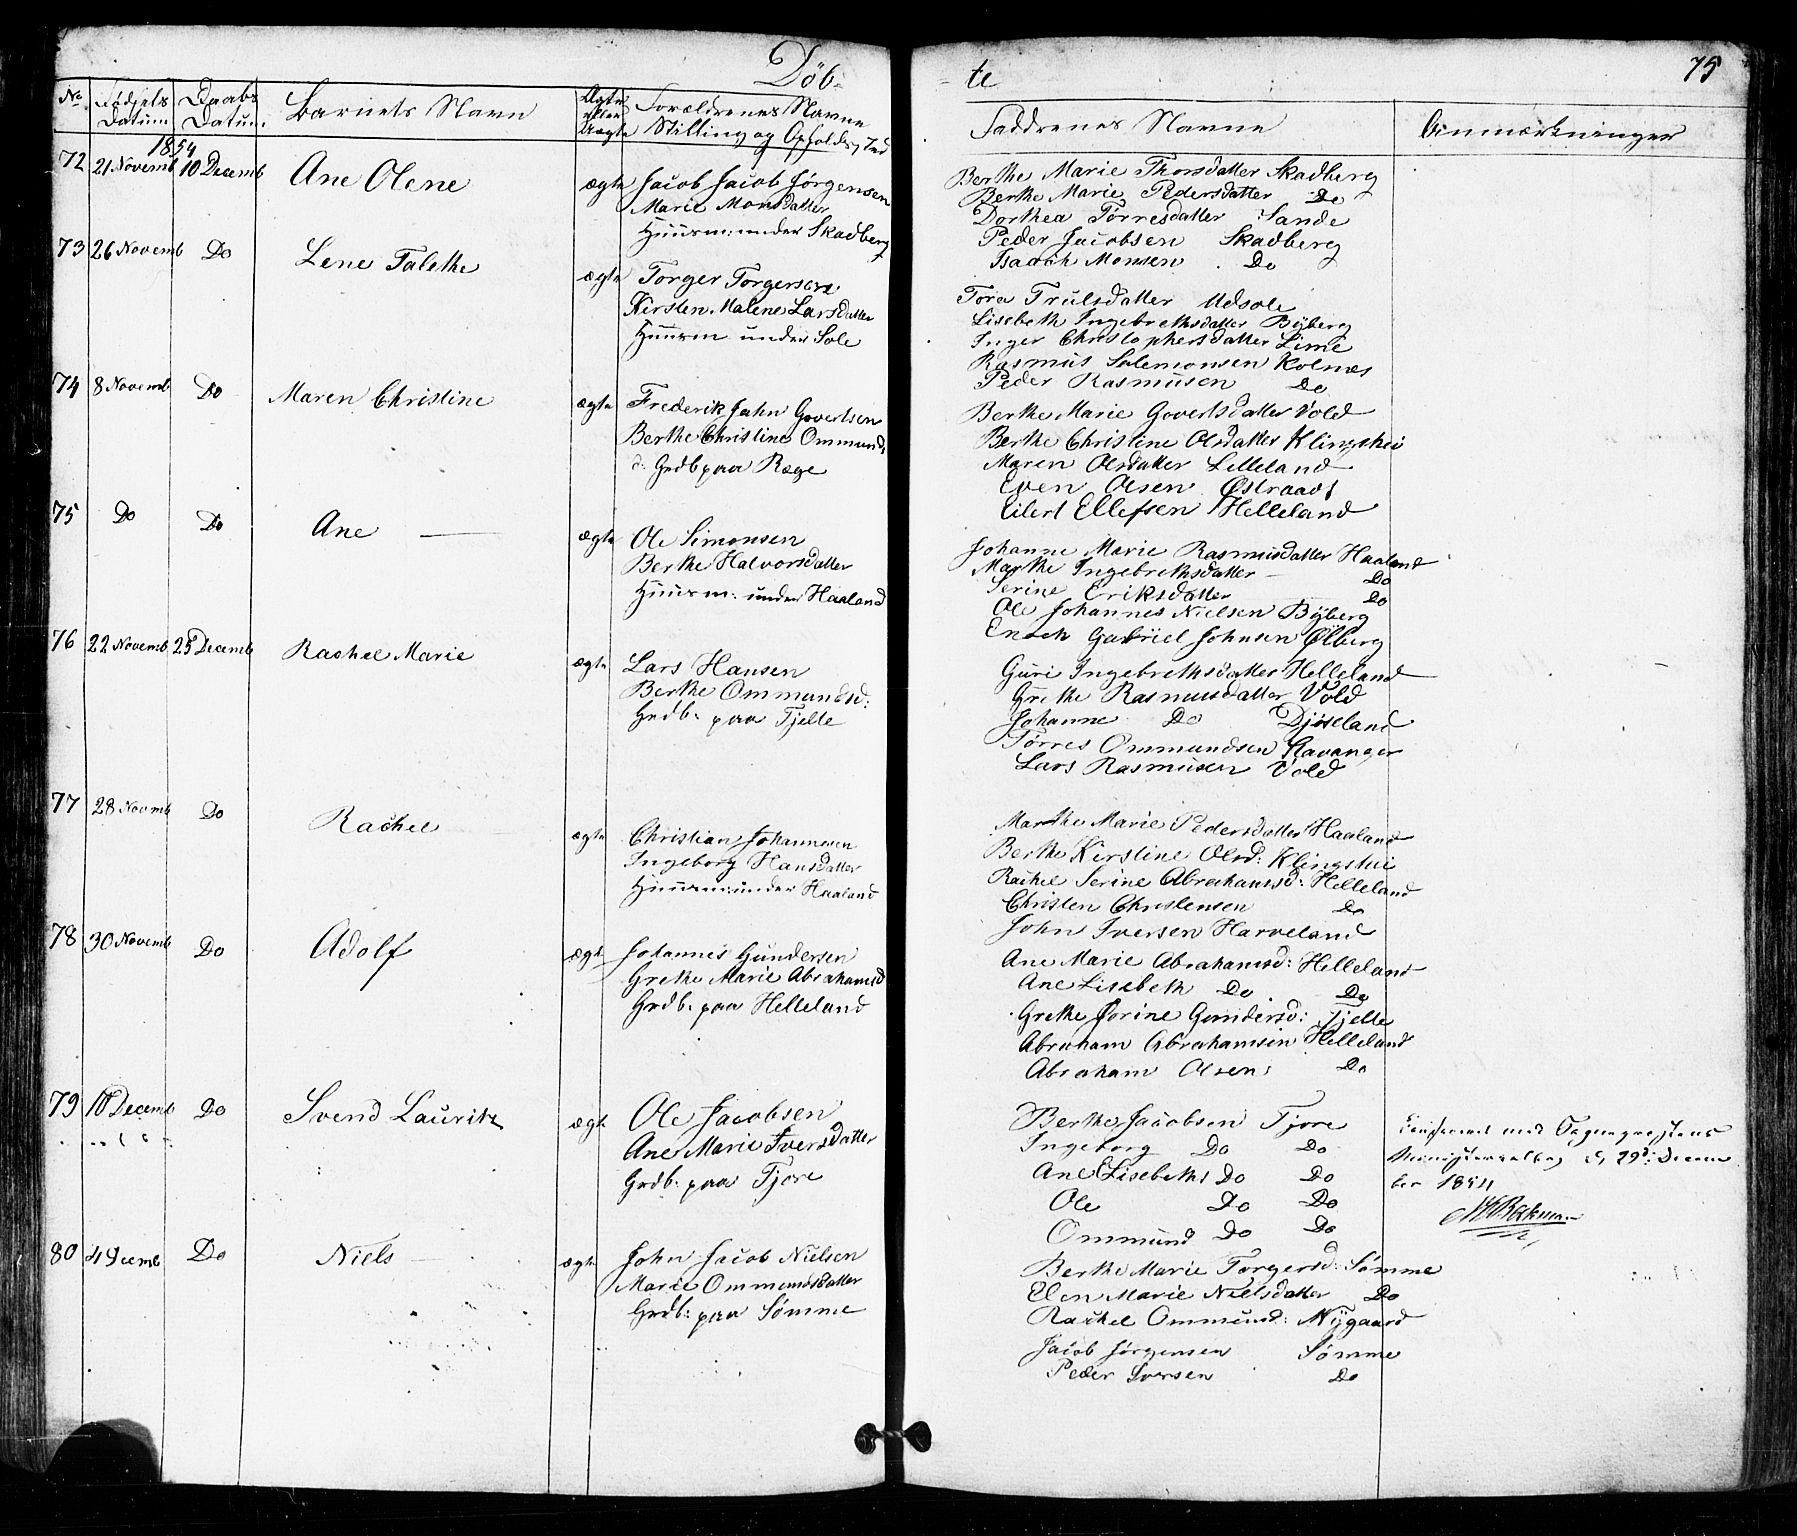 Døb-
te
75
No
Fødsels Datum
Daabs Datum
Barnets Navn
Ægte eller Uægte
Forældrenes Navne Stilling og Opholdssted
Faddrenes Navne
Anmærkninger
1854
72 21 Novemb 10 Decemb Ane Olene ægte Jacob Jacob Jørgensen
Marie Monsdatter
Huusm: under Skadberg
Berthe Marie Thorsdatter Skadberg
Berthe Marie Pedersdatter Do
Dorthea Tørresdatter Sande
Peder Jacobsen Skadberg
Isaach Monsen Do
73 26 Novemb Do Lene Talethe ægte Torger Torgersen
Kirsten Malene Larsdatter
Huusm under Sole
Tora Trulsdatter Udsole
Lisebeth Ingebrethsdatter Byberg
Inger Christophersdatter Lime
Rasmus Salemonsen Kolnes
Peder Rasmusen Do
74 8 Novemb Do Maren Christine ægte Frederik Jahn Govertsen
Berthe Christine Ommunds
d: Grdb paa Ræge
Berthe Marie Govertsdatter Vold
Berthe Christine Olsdatter Klingshei
Maren Olsdatter Lilleland
Even Olsen Østraadt
Eilert Ellefsen Helleland
75 Do Do Ane ægte Ole Simonsen
Berthe Halvorsdatter
Huusm: under Haaland
Johanne Marie Rasmusdatter Haaland
Marthe Ingebrethsdatter Do
Serine Eriksdatter Do
Ole Johannes Nielsen Byberg
Enoch Gabriel Johnsen Ølberg
76 22 Novemb 25 Decemb Rachel Marie ægte Lars Hansen
Berthe Ommundsd:
Grdb: paa Tjelte
Guri Ingebrethsdatter Helleland
Grethe Rasmusdatter Vold
Johanne Do Djøseland
Tørres Ommundsen Stavanger
Lars Rasmusen Vold
77 28 Novmb Do Rachel ægte Christian Johannesen
Ingeborg Hansdatter
Huusm: under Haaland
Marthe Marie Pedersdatter Haaland
Berthe Kirstine Olsd: Klingshei
Rachel Serine Abrahamsd: Helleland
Christen Christensen Do
John Iversen Harveland
78 30 Novemb Do Adolf ægte Johannes Gundersen
Grethe Marie Abrahamsd
Grdb: paa Helleland
Ane Marie Abrahamsd: Helleland
Ane Lisebeth Do Do
Grethe Jorine Gundersd: Tjelte
Abraham Abrahamsen Helleland
Abraham Olsen Do
79 10 Decemb Do Svend Lauritz ægte Ole Jacobsen
Ane Marie Iversdatter
Grdb: paa Tjore
Berthe Jacobsen Tjore
Ingeborg Do Do
Ane Lisebeths Do Do
Ole Do Do
Ommund Do Do
Confereret med Sognepræstens
Ministerialbog d. 29d: Decem
ber 1854
80 4 Decemb Do Niels ægte John Jacob Nielsen
Marie Ommundsdatter
Grdb: paa Sømme
Berthe Marie Torgersd: Sømme
Elen Marie Nielsdatter Do
Rachel Ommundsd: Nygaard
Jacob Jørgensen Sømme
Peder Iversen Do